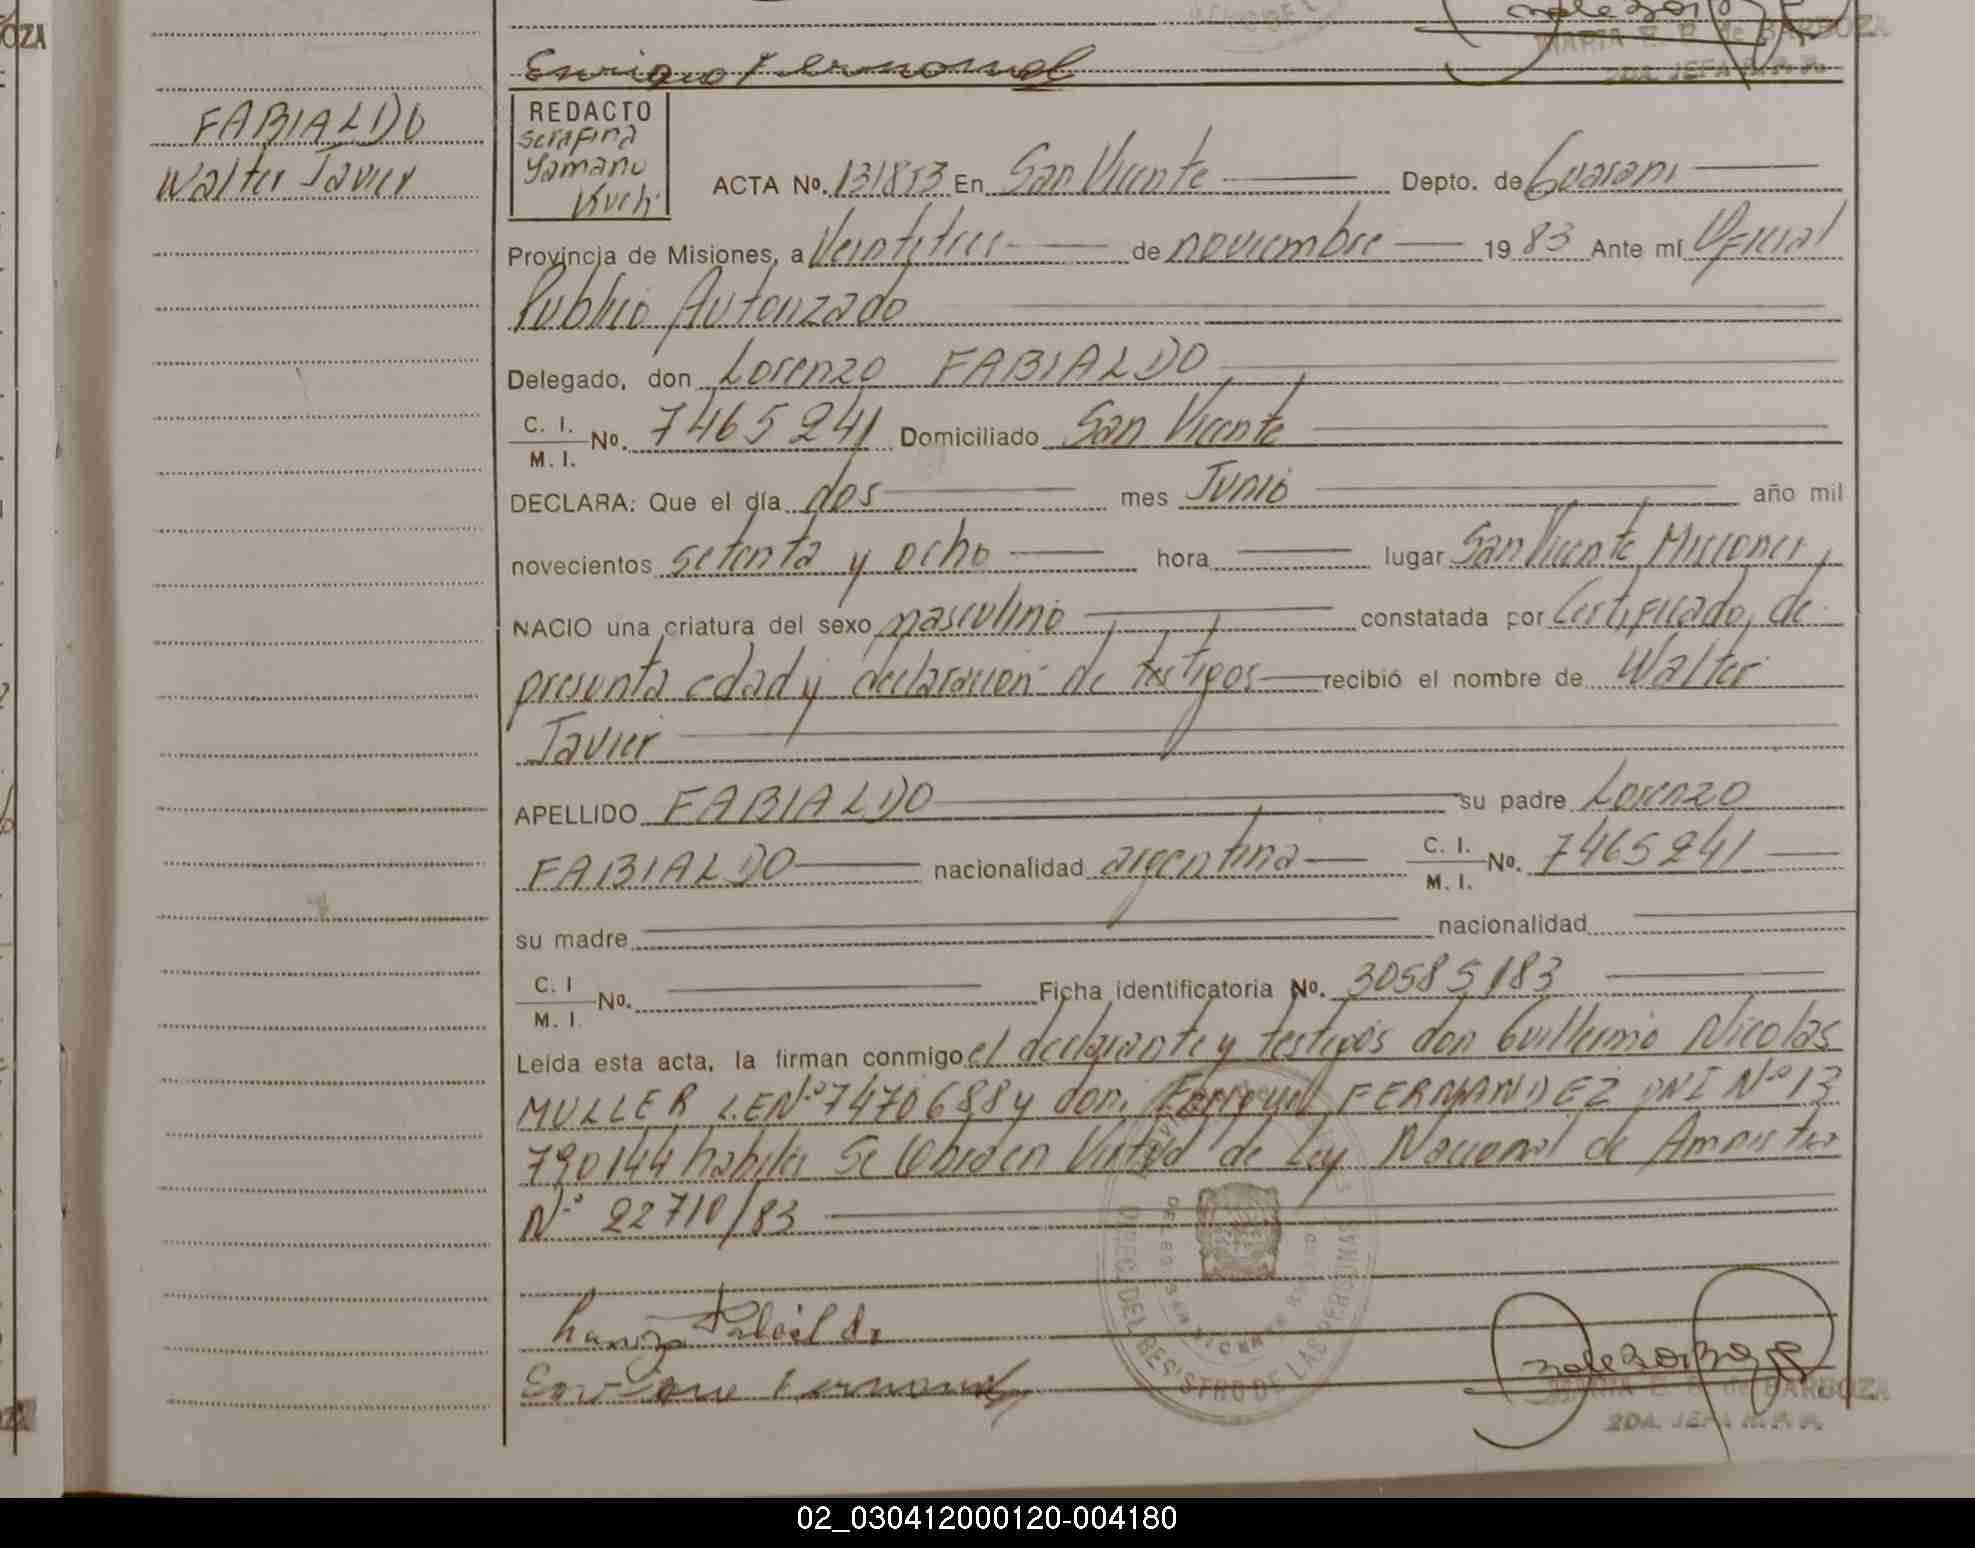 OZA
Enrique Fernandez
MARIA E. B. de BARBOZA
2DA. JEFA R. P. P.
FABIALDO
Walter Javier
REDACTO
Serafina
Yamanu
Kuchi
ACTA No. 131853 En San Vicente Depto. de Guarani
Provincia de Misiones, a Veintitres de noviembre 1983 Ante mí Oficial
Publico Autorizado
Delegado, don Lorenzo FABIALDO
C. I.
M. I. No. 7465241 Domiciliado San Vicente
DECLARA: Que el día dos mes Junio año mil
novecientos setenta y ocho hora lugar San Vicente Misiones,
NACIO una criatura del sexo masculino constatada por Certificado, de
presunta edad y declaracion de testigos recibió el nombre de Walter
Javier
APELLIDO FABIALDO su padre Lorenzo
FABIALDO nacionalidad argentina C. I. M. I. No. 7465241
su madre nacionalidad
C. I M. I. No. Ficha identificatoria No. 30585183
Leída esta acta, la firman conmigo el declarante y testigos don Guillermo Nicolas
MULLER L.E Nº 7470688 y don, Enrique FERNANDEZ DNI Nº 13
790144 habiles Se labra en Virtud de Ley Nacional de Amnistia
Nº 22710/83
DIREC. DEL REGISTRO DE LAS PERSONAS
Enrique Fernandez
MARIA E. B. de BARBOZA
2DA. JEFA R. P. P.
02_030412000120-004180